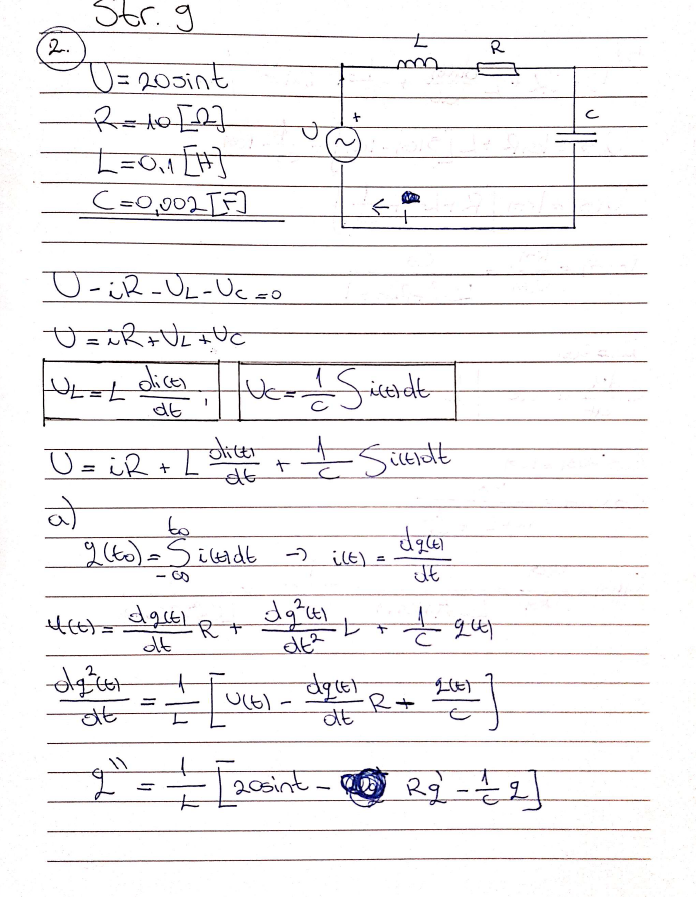 Str. 9
2.
U = 20sint
R = 10 [Ω]
L = 0,1 [H]
C = 0,002 [F]
L R
C
U + ~
← i
U - iR - UL - UC = 0
U = iR + UL + UC
UL = L di(t)/dt ; UC = 1/C ∫ i(t)dt
U = iR + L di(t)/dt + 1/C ∫ i(t)dt
a)
q(t0) = ∫_{-∞}^{t0} i(t)dt → i(t) = dq(t)/dt
u(t) = dq(t)/dt R + dq²(t)/dt² L + 1/C q(t)
dq²(t)/dt = 1/L [U(t) - dq(t)/dt R + q(t)/C]
q'' = 1/L [20sint - Rq' - 1/C q]